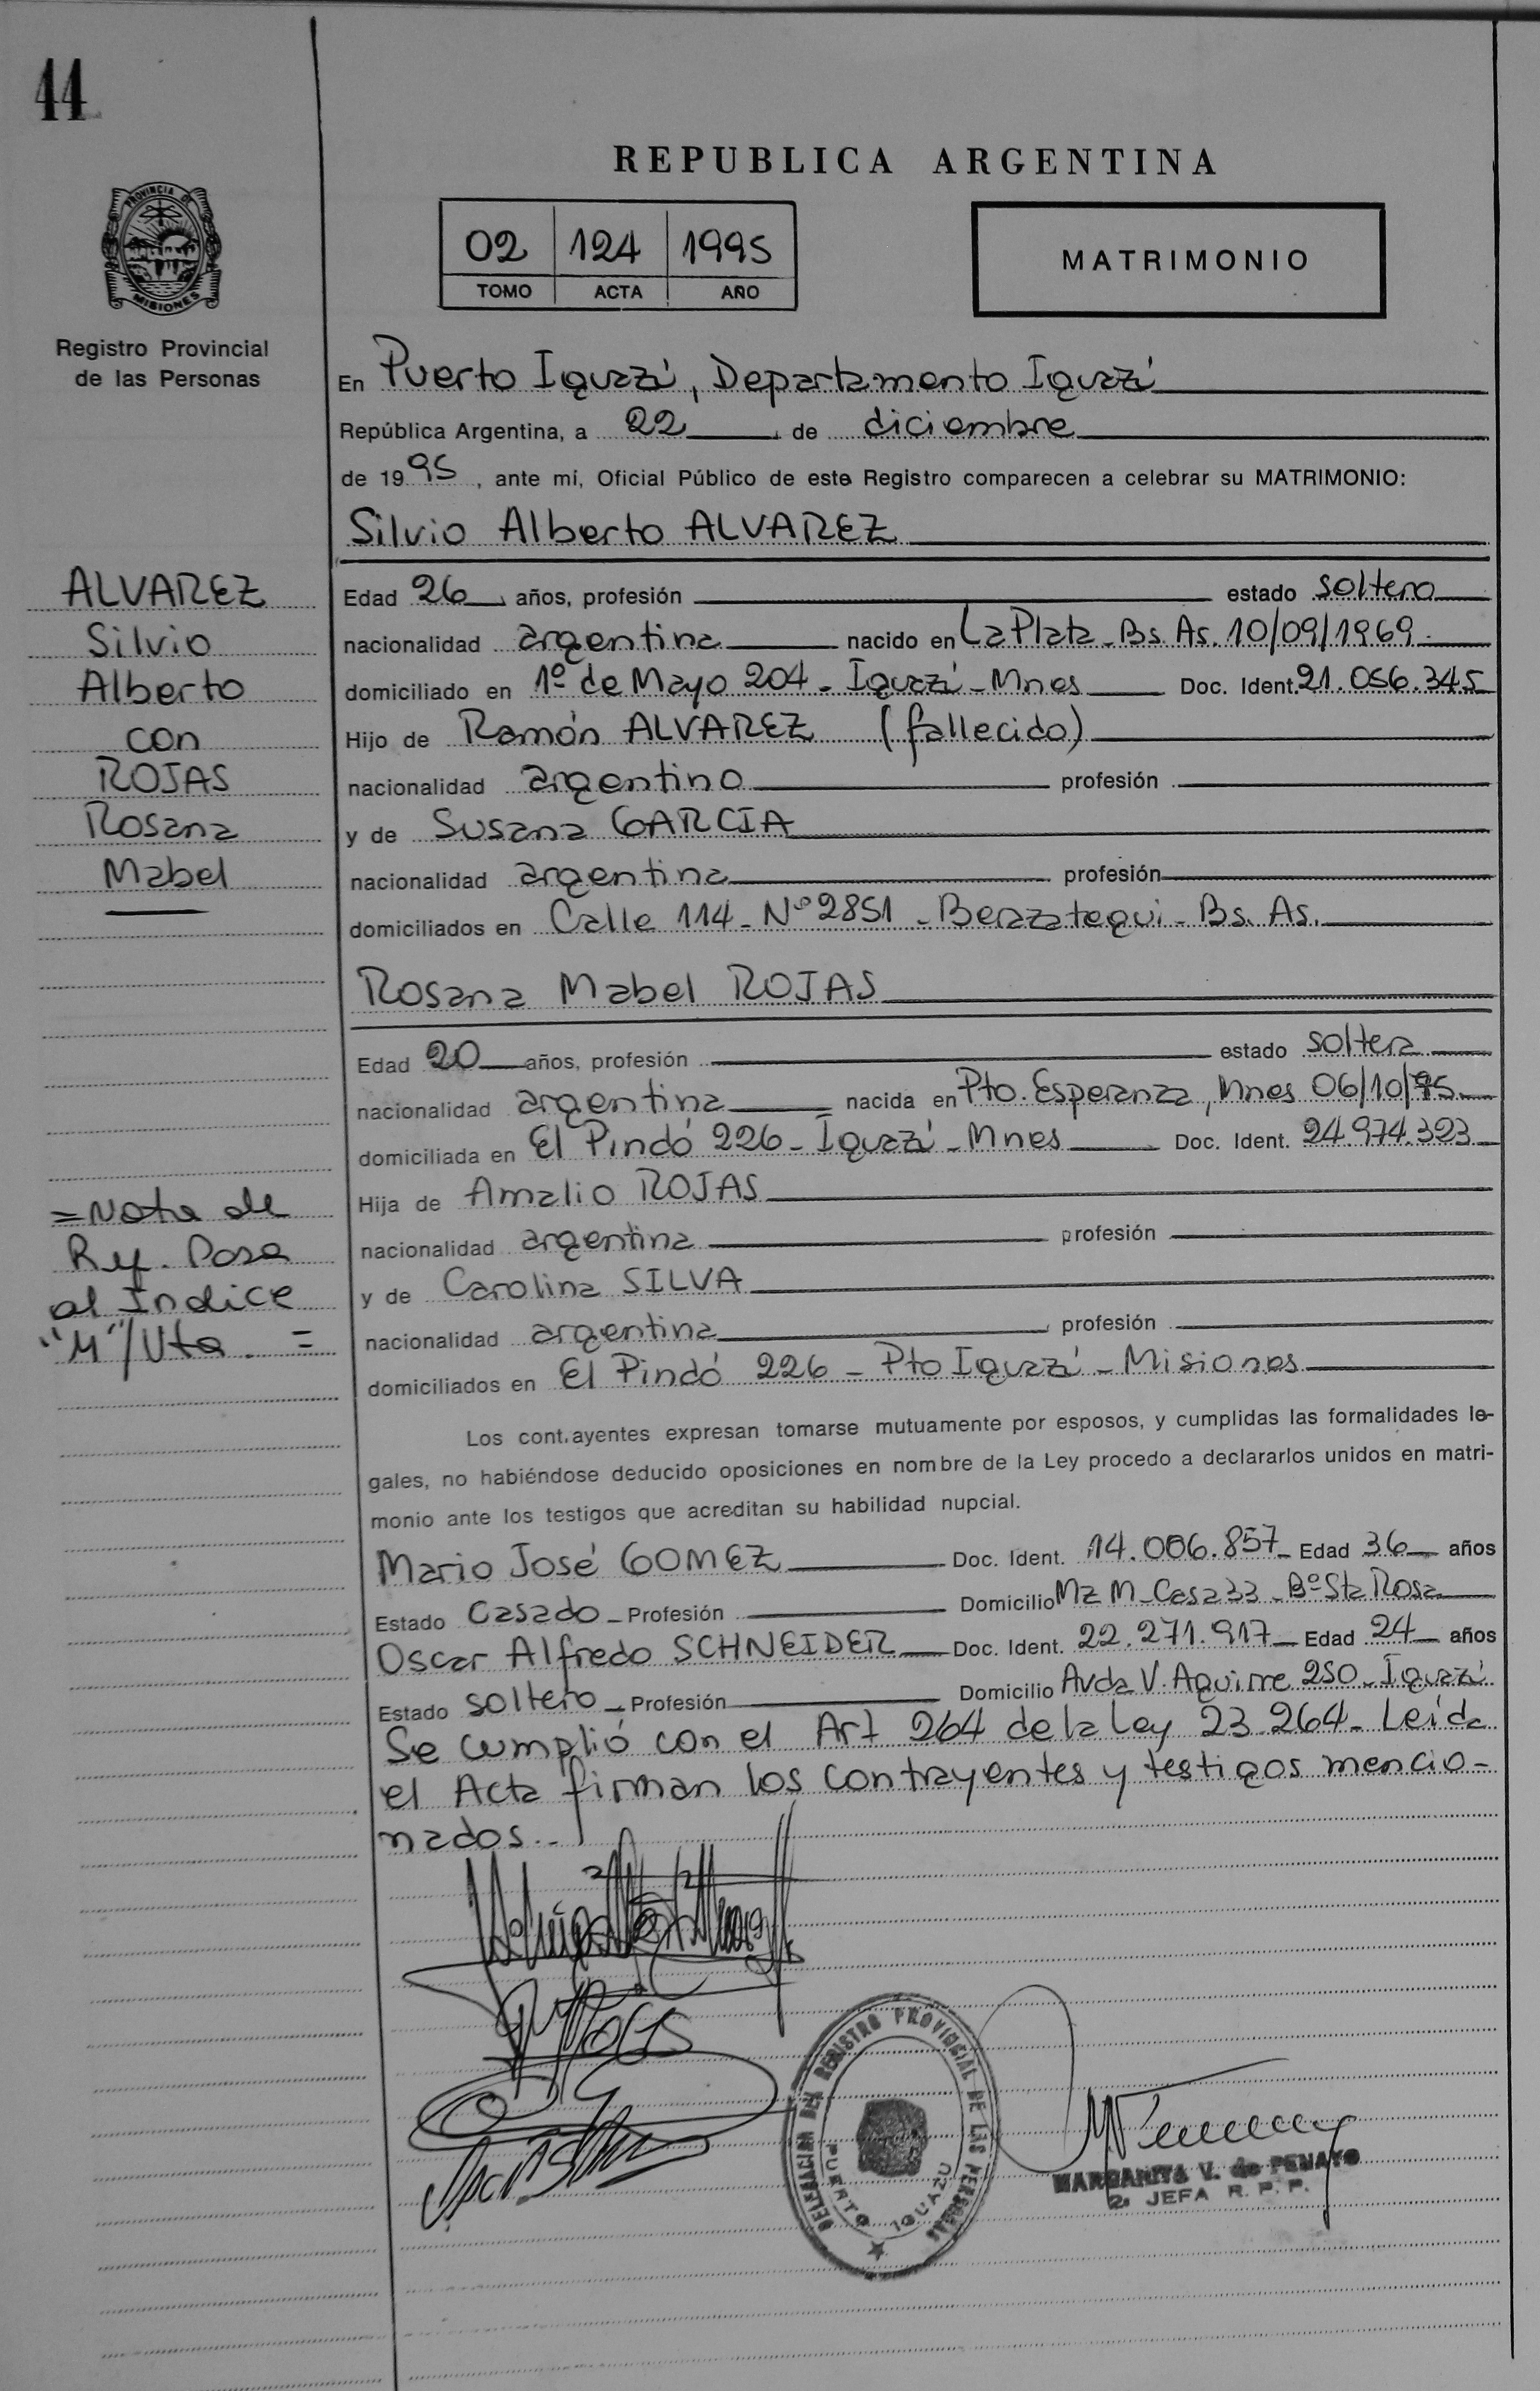 44
REPUBLICA ARGENTINA
PROVINCIA DE
MISIONES
Registro Provincial
de las Personas
02 124 1995
TOMO ACTA AÑO
MATRIMONIO
En Puerto Iguazú, Departamento Iguazú
República Argentina, a 22 de diciembre
de 1995, ante mí, Oficial Público de este Registro comparecen a celebrar su MATRIMONIO:
Silvio Alberto ALVAREZ
ALVAREZ
Silvio
Alberto
con
ROJAS
Rosana
Mabel
Edad 26 años, profesión estado soltero
nacionalidad argentina nacido en La Plata - Bs. As. 10/09/1969
domiciliado en 1º de Mayo 204 - Iguazú - Mnes Doc. Ident. 21.056.345
Hijo de Ramón ALVAREZ (fallecido)
nacionalidad argentino profesión
y de Susana GARCIA
nacionalidad argentina profesión
domiciliados en Calle 114 - Nº 2851 - Berazategui - Bs. As.
Rosana Mabel ROJAS
Edad 20 años, profesión estado soltera
nacionalidad argentina nacida en Pto. Esperanza, Mnes 06/10/75
domiciliada en El Pindó 226 - Iguazú - Mnes Doc. Ident. 24.974.323
Hija de Amalio ROJAS
nacionalidad argentina profesión
y de Carolina SILVA
nacionalidad argentina profesión
domiciliados en El Pindó 226 - Pto Iguazú - Misiones
= Nota de
Ref. Pasa
al Indice
"M"/Vta. =
Los contrayentes expresan tomarse mutuamente por esposos, y cumplidas las formalidades le-
gales, no habiéndose deducido oposiciones en nombre de la Ley procedo a declararlos unidos en matri-
monio ante los testigos que acreditan su habilidad nupcial.
Mario José GOMEZ Doc. Ident. 14.006.857 Edad 36 años
Estado Casado - Profesión Domicilio Mz M - Casa 33 - Bº Sta Rosa
Oscar Alfredo SCHNEIDER Doc. Ident. 22.271.917 Edad 24 años
Estado soltero Profesión Domicilio Avda V. Aguirre 250 - Iguazú
Se cumplió con el Art 264 de la Ley 23.264 - Leída
el Acta firman los contrayentes y testigos mencio-
nados.-
DELEGACION DEL REGISTRO PROVINCIAL DE LAS PERSONAS
PUERTO IGUAZU
MARGARITA V. de PENAYO
2ª JEFA R. P. P.